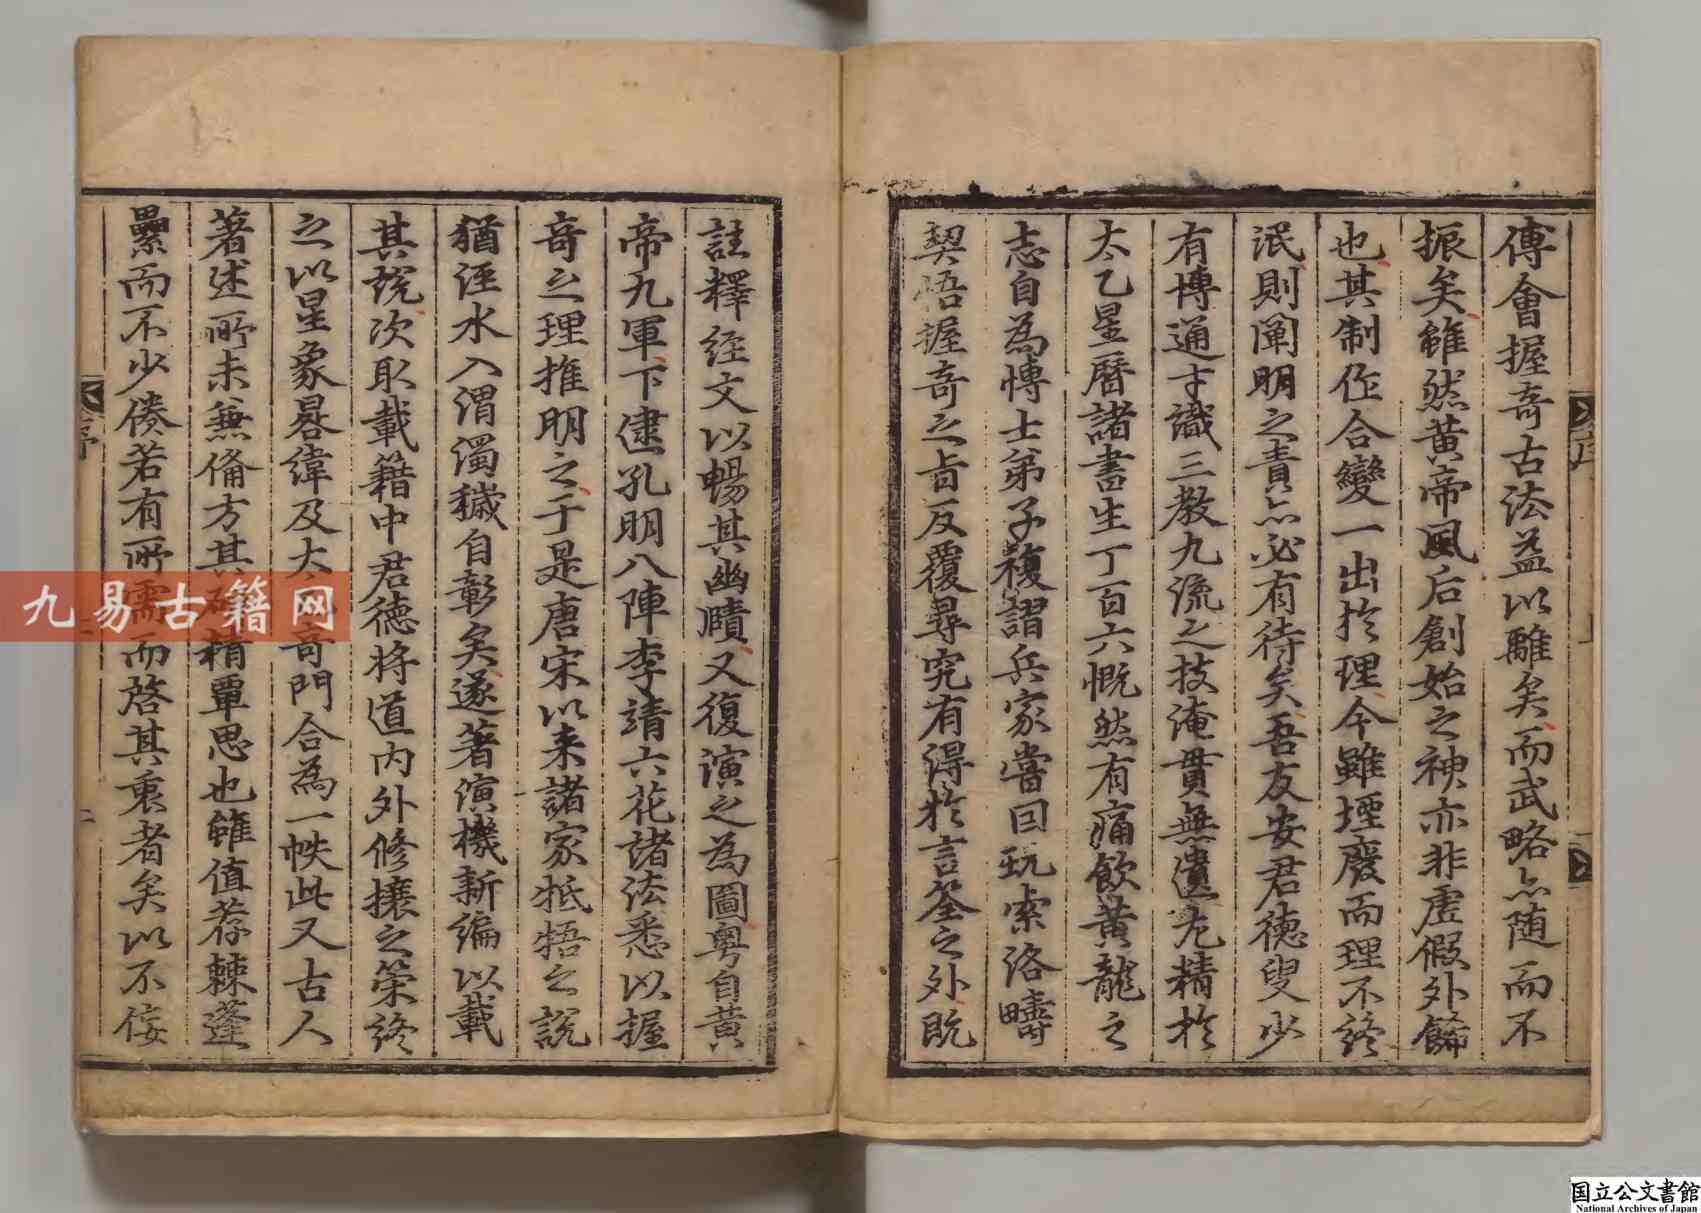 傅會握奇古法益以離矣而武略亦随而不
振矣雖然黃帝風后創始之神亦非虛假外餙
也其制作合變一出於理今雖堙廢而理不終
泯則闡明之責亦必有待矣吾友安君德叟少
有博通才識三教九流之技淹貫無遺尤精於
太乙星曆諸書生丁百六慨然有痛飲黃龍之
志自為博士弟子複謂兵家嘗回玩索洛疇
契悟握奇之旨反覆尋究有得於言筌之外既
註釋經文以暢其幽賾又復演之為圖粤自黃
帝九軍下逮孔明八陣李靖六花諸法悉以握
奇之理推明之于是唐宋以来諸家牴牾之說
猶涇水入渭濁穢自彰矣遂著演機新編以載
其說次取載籍中君德将道内外修攘之策終
之以星象晷緯及太奇門合為一帙此又古人
著述所未兼備方其精覃思也雖值荐棘蓬
纍而不少倦若有所需而啓其衷者矣以不佞
序
序
九易古籍网
国立公文書館
National Archives of Japan